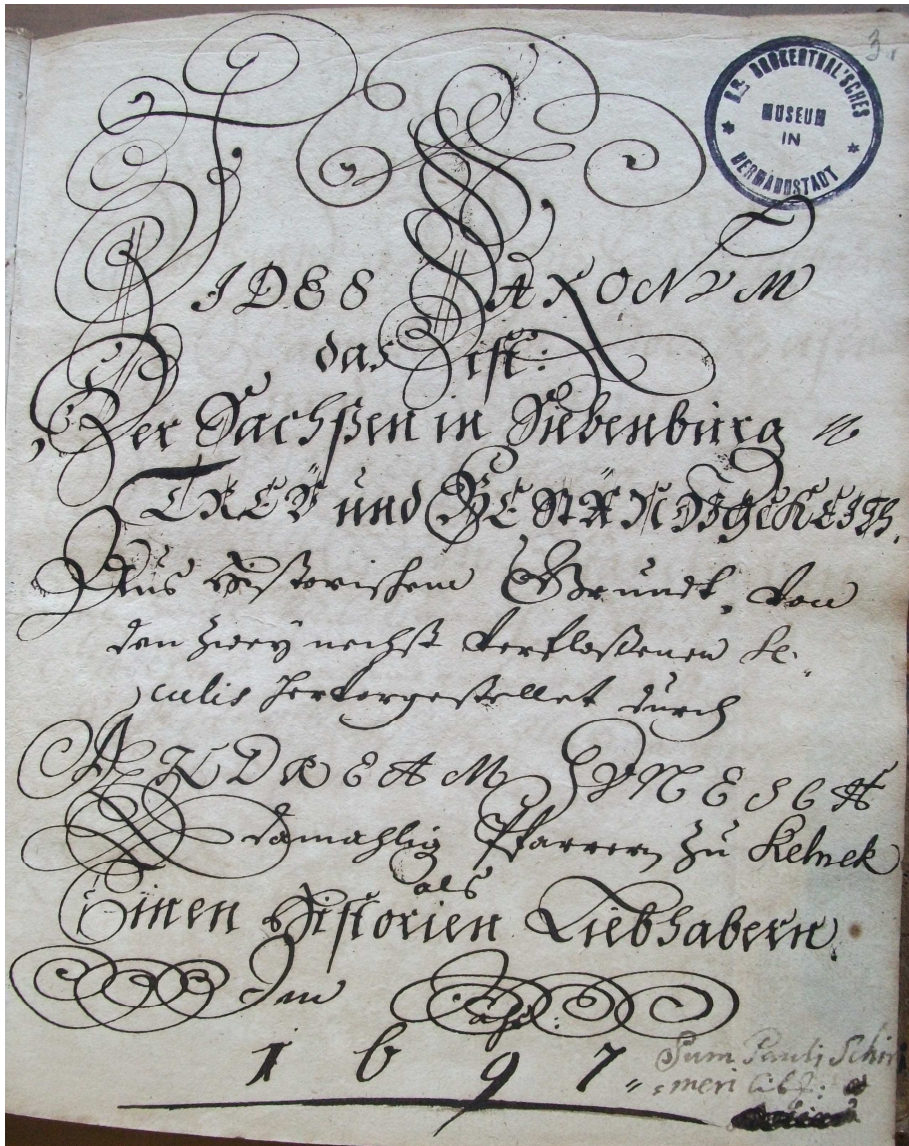 3.
B. BRUKENTHAL'SCHES
MUSEUM
IN
HERMANNSTADT
FIDES SAXONUM
das ist:
Der Sachßen in Siebenbürg
TREŸ und BESTÄNDIGKEITh.
Aus Historischem Grundt, von
den zweÿ nechst verfloßenen Se,,
culis hervorgestellet durch
ANDREAM GUNESCH
damahlig Pfarrern zu Kelnek
als
Einen Historien Liebhabern.
Im Jahr:
1697
Sum Pauli Schir
meri